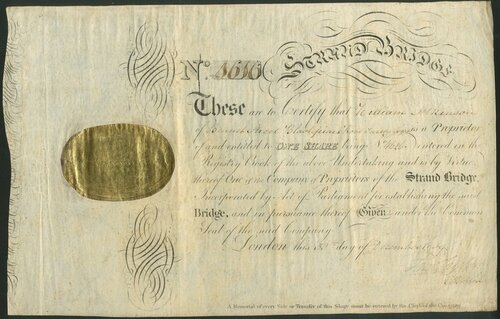 STRAND BRIDGE.
No. 4616
These are to Certify that William
of Street Blackfriars is a Proprietor
of and entitled to ONE SHARE being No. 4616 entered in the
Registry Book of the above Undertaking and is by Virtue
thereof One of the Company of Proprietors of the Strand Bridge,
Incorporated by Act of Parliament for establishing the said
Bridge, and in pursuance thereof Given under the Common
Seal of the said Company
London this day of December
A Memorial of every Sale or Transfer of this Share must be entered by the Clerk of the Company